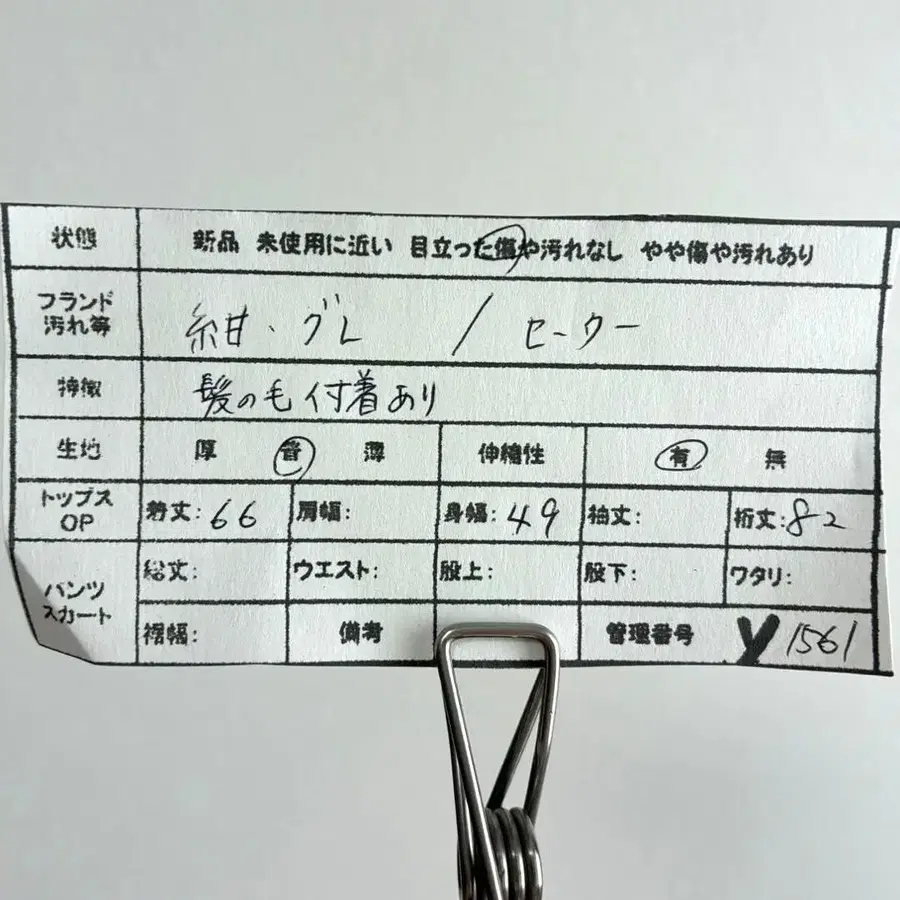 状態 新品 未使用に近い 目立った傷や汚れなし やや傷や汚れあり
フランド 汚れ等 紺・グレ / セーター
特徴 髪の毛付着あり
生地 厚 普 薄 伸縮性 有 無
トップス OP 着丈:66 肩幅: 身幅:49 袖丈: 裄丈:82
パンツ スカート 総丈: ウエスト: 股上: 股下: ワタリ:
裾幅: 備考 管理番号 Y 1561